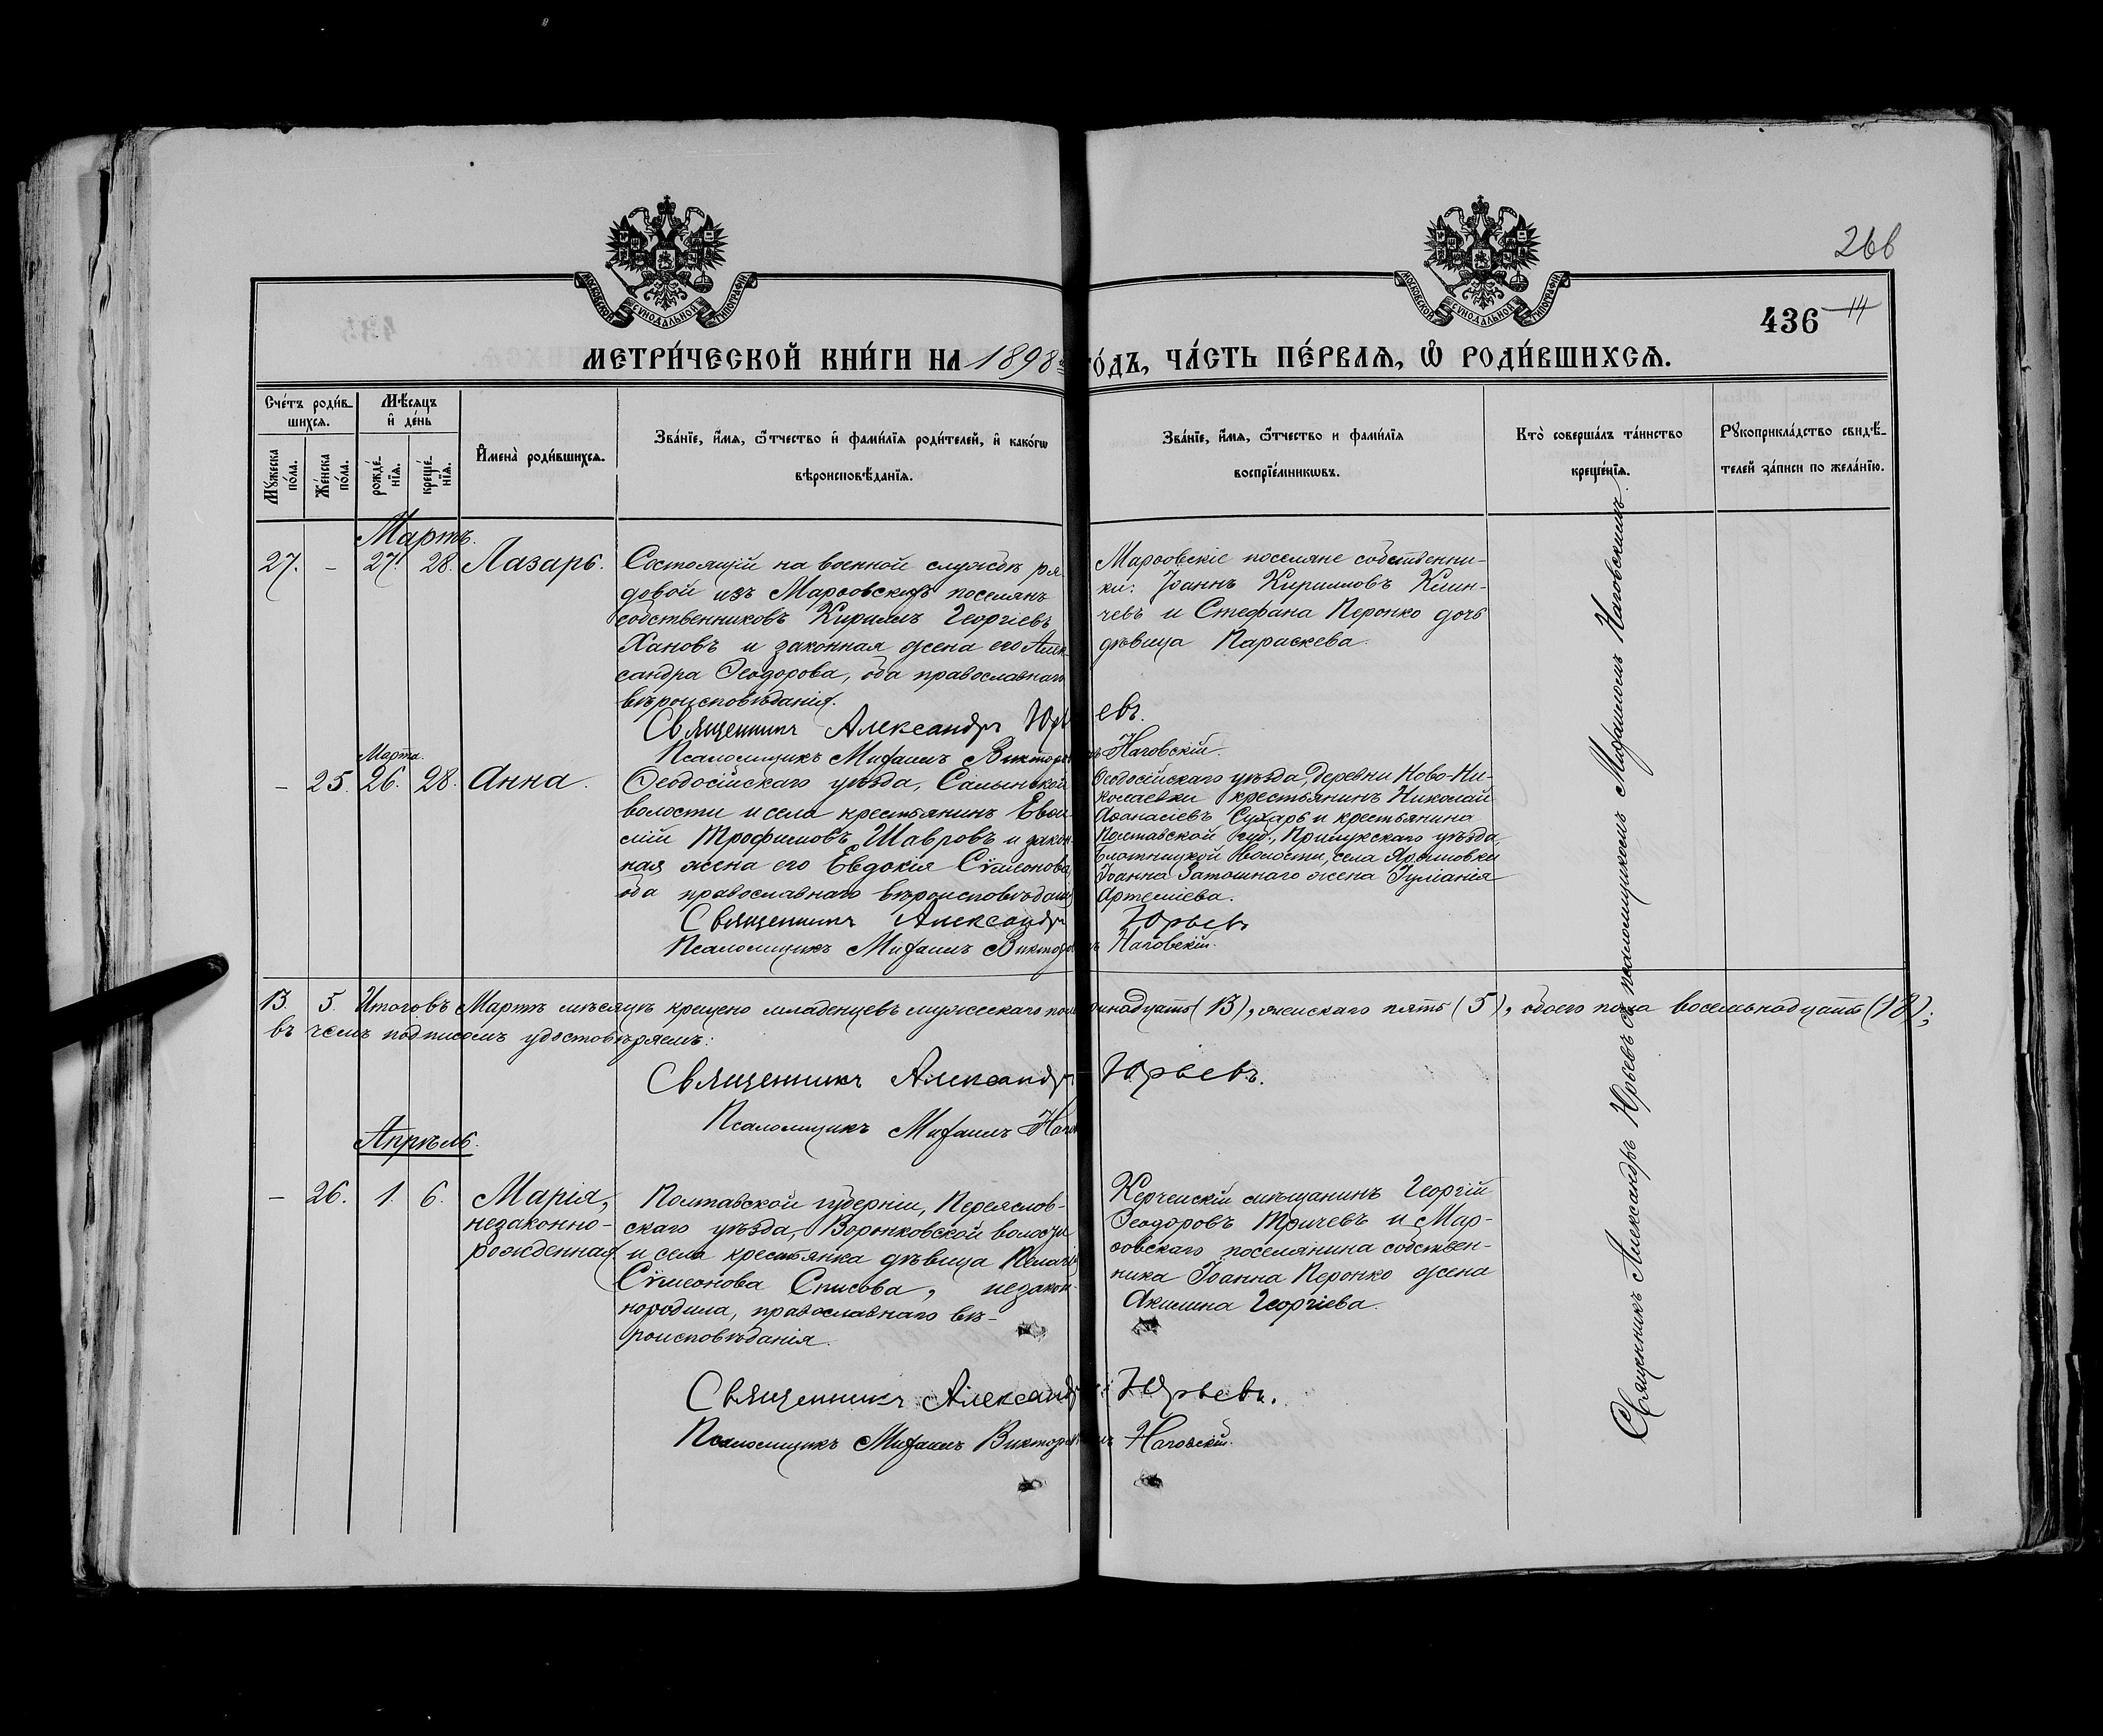 266
436 14
МОСКОВСКОЙ СѴНОДАЛЬНОЙ ТИПОГРАФІИ
МОСКОВСКОЙ СѴНОДАЛЬНОЙ ТИПОГРАФІИ
МЕТРИ́ЧЕСКОЙ КНИ́ГИ НА 1898 ГО́ДЪ, ЧА́СТЬ ПЕ́РВАѦ, Ѽ РОДИ́ВШИХСѦ.
Сче́тъ роди́в-
шихсѧ.
Мꙋ́жеска по́ла.
Же́нска по́ла.
Мѣ́сѧцъ
и҆ де́нь
рожде́-
нїѧ.
креще́-
нїѧ.
И҆мена̀ роди́вшихсѧ.
Зва́нїе, и҆́мѧ, ѻ҆́тчество и҆ фами́лїѧ роди́телей, и҆ како́гѡ
вѣроисповѣ́данїѧ.
Зва́нїе, и҆́мѧ, ѻ҆́тчество и фами́лїѧ
воспрїе́мникѡвъ.
Кто̀ соверша́лъ та́инство
креще́нїѧ.
Рꙋкоприкла́дство свидѣ́-
телей за́писи по жела́нїю.
Мартъ.
27. - 27. 28. Лазарь.
Состоящій на военной службѣ ря-
довой изъ Марѳовскихъ поселянъ
собственниковъ Кириллъ Георгіевъ
Хановъ и законная жена его Алек-
сандра Ѳеодорова, оба православнаго
вѣроисповѣданія.
Марѳовскіе поселяне собственни-
ки: Іоаннъ Кирилловъ Клин-
чевъ и Стефана Перонко дочь
дѣвица Параскева.
Священникъ Александръ Юрьевъ.
Псаломщикъ Михаилъ Викторовичъ Наговскій.
Марта.
- 25. 26. 28. Анна.
Ѳеодосійскаго уѣзда, Салынской
волости и села крестьянинъ Евѳи-
мій Трофимовъ Шавровъ и закон-
ная жена его Евдокія Сѵмеонова,
оба православнаго вѣроисповѣданія
Ѳеодосійскаго уѣзда, деревни Ново-Ни-
колаевки крестьянинъ Николай
Аѳанасіевъ Сухарь и крестьянина
Полтавской губ., Прилукскаго уѣзда,
волости, села Ярошовки
Іоанна жена Іуліанія
Артеміева.
Священникъ Александръ Юрьевъ
Псаломщикъ Михаилъ Викторовичъ Наговскій.
13. 5. Итого въ Мартѣ мѣсяцѣ крещено младенцевъ мужескаго пола тринадцать (13), женскаго пять (5), обоего пола восемьнадцать (18);
въ чемъ подписомъ удостовѣряемъ:
Священникъ Александръ Юрьевъ.
Псаломщикъ Михаилъ
Апрѣль.
- 26. 1. 6. Марія,
незаконно-
рожденная
Полтавской губерніи, Переяслов-
скаго уѣзда, Воронковской волости
и села крестьянка дѣвица Пелагія
Сѵмеонова Списова, незакон-
нородила, православнаго вѣ-
роисповѣданія.
Керченскій мѣщанинъ Георгій
Ѳеодоровъ Тричевъ и Мар-
ѳовскаго поселянина собствен-
ника Іоанна Перонко жена
Акилина Георгіева.
Священникъ Александръ Юрьевъ.
Псаломщикъ Михаилъ Викторовичъ Наговскій.
Священникъ Александръ Юрьевъ съ псаломщикомъ Михаиломъ Наговскимъ.